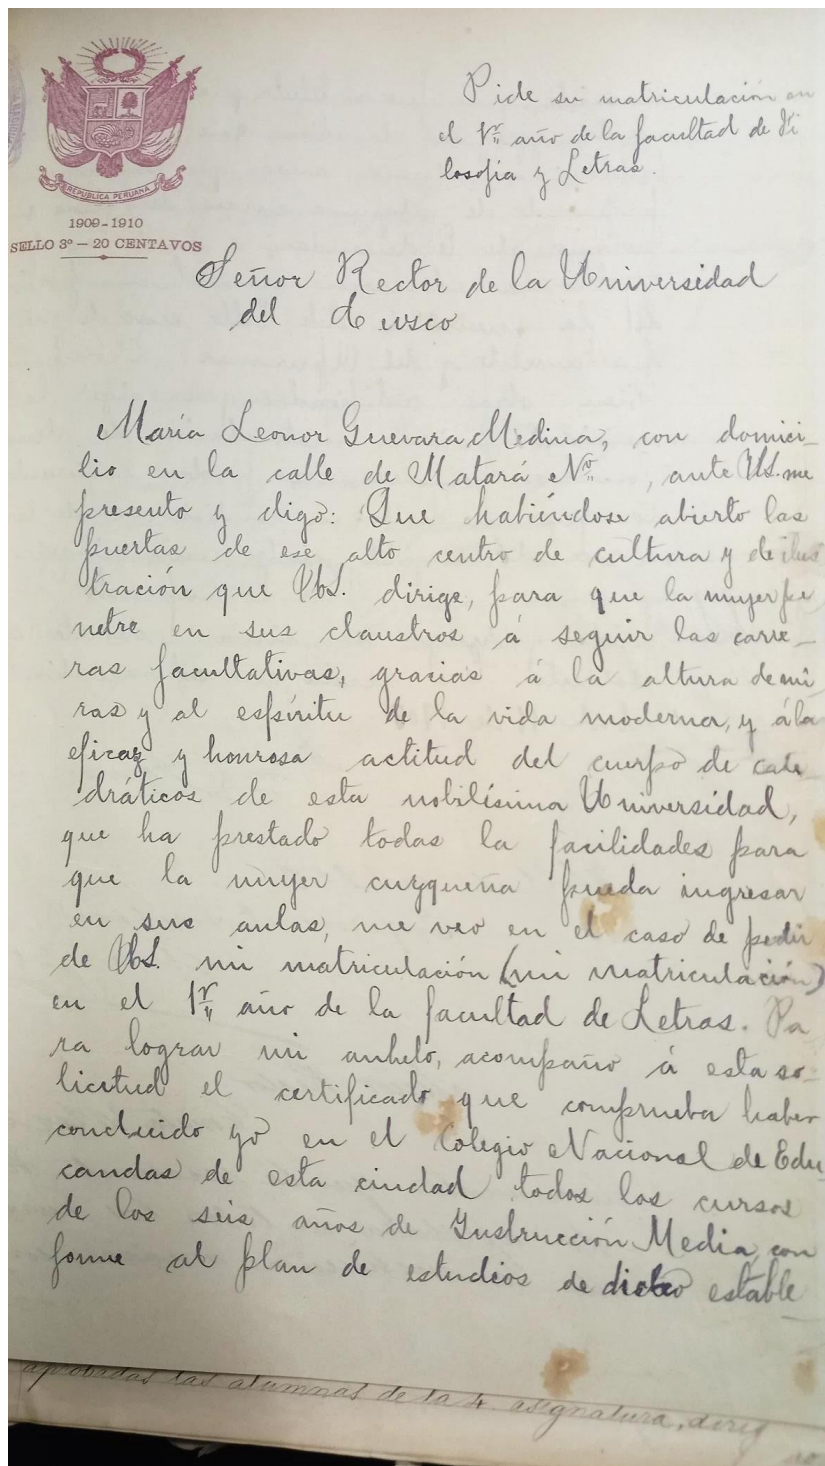 REPUBLICA PERUANA
1909-1910
SELLO 3º — 20 CENTAVOS
Pide su matriculación en
el 1r. año de la facultad de Fi
losofia y Letras.
Señor Rector de la Universidad
del Cuzco
María Leonor Guevara Medina, con domici-
lio en la calle de Matará Nº , ante US. me
presento y digo: Que habiéndose abierto las
puertas de ese alto centro de cultura y de ilus
tración que US. dirige, para que la mujer pe
netre en sus claustros á seguir las carre-
ras facultativas, gracias á la altura de mi
ras y al espíritu de la vida moderna, y á la
eficaz y honrosa actitud del cuerpo de cate
dráticos de esta nobilísima Universidad,
que ha prestado todas la facilidades para
que la mujer cuzqueña pueda ingresar
en sus aulas, me veo en el caso de pedir
de US. mi matriculación (mi matriculación)
en el 1r. año de la facultad de Letras. Pa
ra lograr mi anhelo, acompaño á esta so-
licitud el certificado que comprueba haber
concluido yo en el Colegio Nacional de Edu
candas de esta ciudad todos los cursos
de los seis años de Instrucción Media, con
forme al plan de estudios de dicho estable
aprobadas las alumnas de la 4. asignatura, dirig